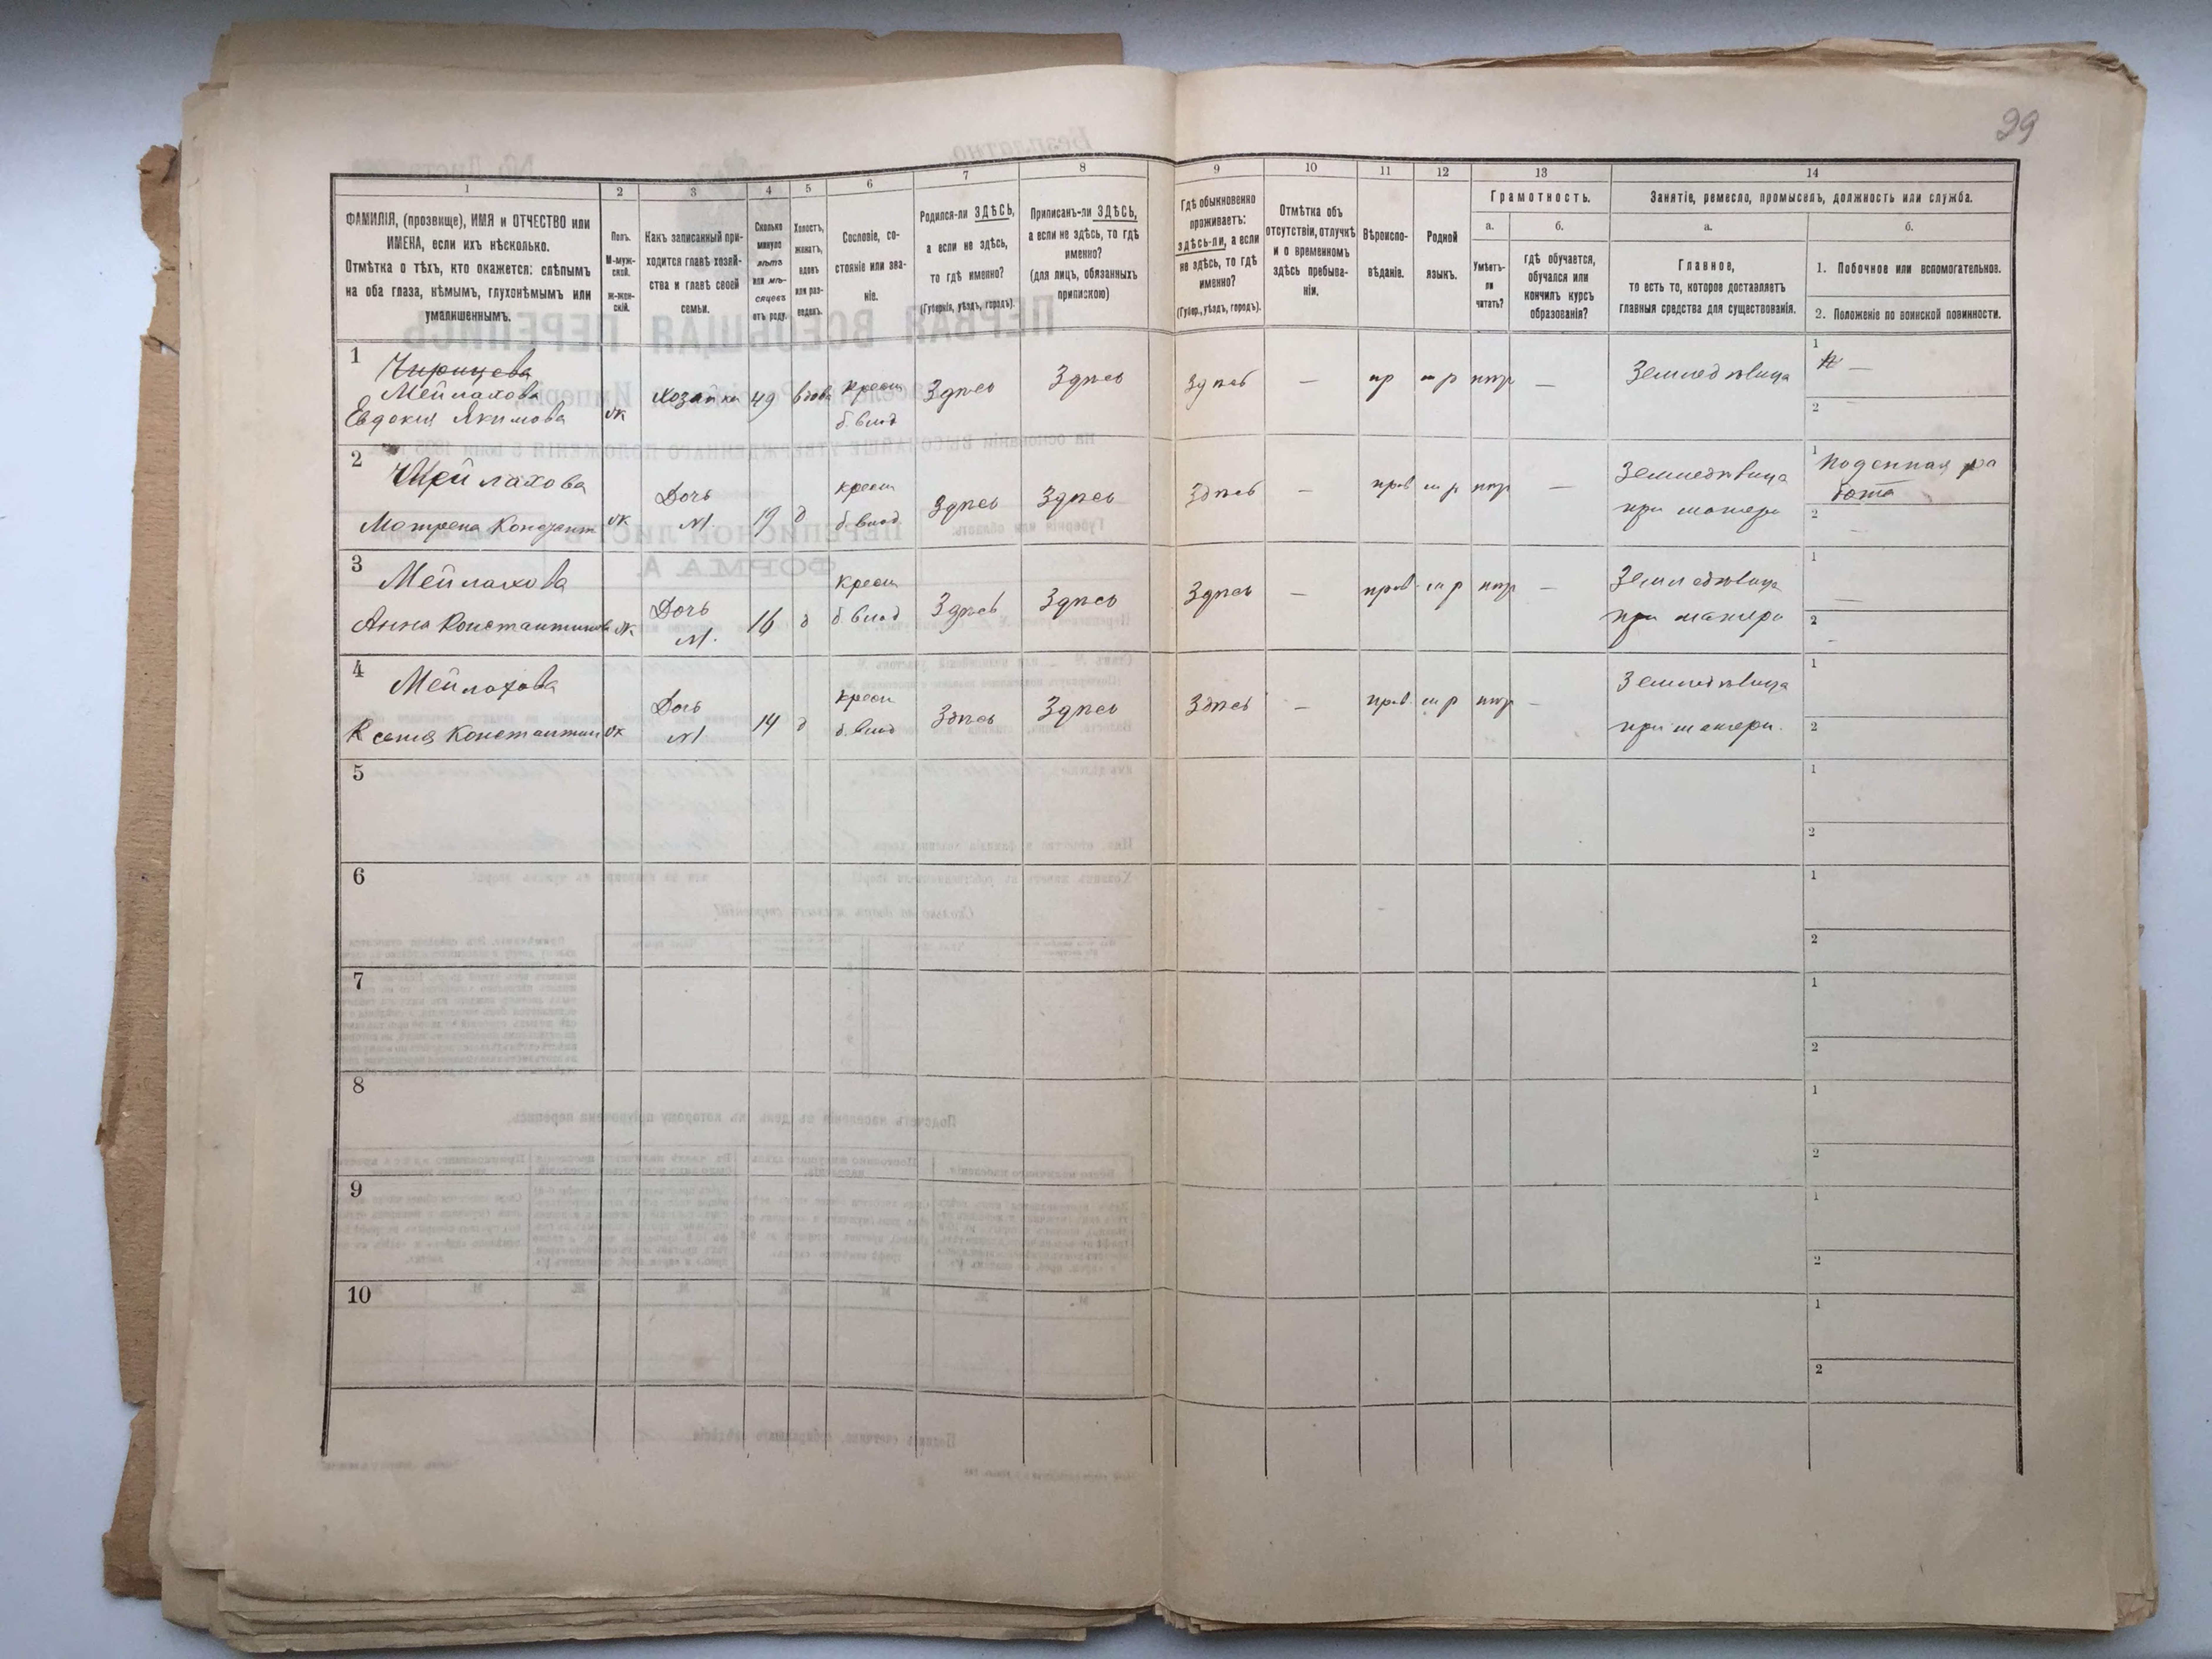 29
1
2
3
4
5
6
7
8
9
10
11
12
13
14
ФАМИЛІЯ, (прозвище), ИМЯ и ОТЧЕСТВО или
ИМЕНА, если ихъ нѣсколько.
Отмѣтка о тѣхъ, кто окажется: слѣпымъ
на оба глаза, нѣмымъ, глухонѣмымъ или
умалишеннымъ.
Полъ.
М-муж-
ской.
Ж-жен-
скій.
Какъ записанный при-
ходится главѣ хозяй-
ства и главѣ своей
семьи.
Сколько
минуло
лѣтъ
или мѣ-
сяцевъ
отъ роду.
Холостъ,
женатъ,
вдовъ
или раз-
веденъ.
Сословіе, со-
стояніе или зва-
ніе.
Родился-ли ЗДѢСЬ,
а если не здѣсь,
то гдѣ именно?
(Губернія, уѣздъ, городъ).
Приписанъ-ли ЗДѢСЬ,
а если не здѣсь, то гдѣ
именно?
(для лицъ, обязанныхъ
припискою)
Гдѣ обыкновенно
проживаетъ:
здѣсь-ли, а если
не здѣсь, то гдѣ
именно?
(Губер., уѣздъ, городъ).
Отмѣтка объ
отсутствіи, отлучкѣ
и о временномъ
здѣсь пребыва-
ніи.
Вѣроиспо-
вѣданіе.
Родной
языкъ.
Грамотность.
а.
Умѣетъ-
ли
читать?
б.
гдѣ обучается,
обучался или
кончилъ курсъ
образованія?
Занятіе, ремесло, промыселъ, должность или служба.
а.
Главное,
то есть то, которое доставляетъ
главныя средства для существованія.
б.
1. Побочное или вспомогательное.
2. Положеніе по воинской повинности.
1
Мейлахова
Евдокия Якимова
Ж
Хозяйка
49
вдова
крест
б. влад
Здѣсь
Здѣсь
Здѣсь
—
пр
м р
—
Земледѣлица
1
—
2
2
Мейлахова
Матрена Констант
Ж
Дочь
№1
19
д
крест
б. влад
Здѣсь
Здѣсь
Здѣсь
—
прав
м р
—
Земледѣлица
при матери
1
Поденная ра
бота
2
—
3
Мейлахова
Анна Константинова
Ж
Дочь
№1.
16
д
крест
б. влад
Здѣсь
Здѣсь
Здѣсь
—
прав
м р
—
Земледѣлица
при матери
1
—
2
—
4
Мейлахова
Ксения Константин
Ж
Дочь
№1
14
д
крест
б. влад
Здѣсь
Здѣсь
Здѣсь
—
прав.
м р
—
Земледѣлица
при матери.
1
2
5
1
2
6
1
2
7
1
2
8
1
2
9
1
2
10
1
2